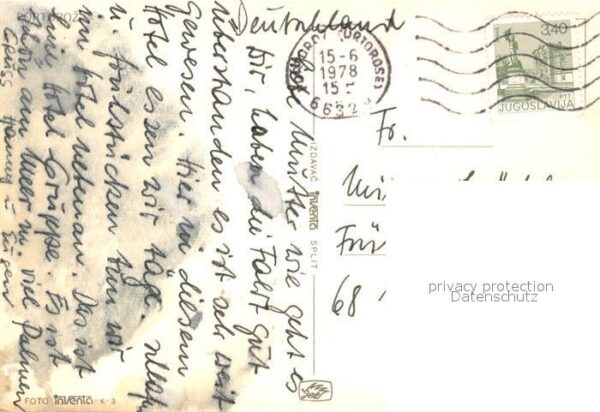 PORTOROŽ
Deutschland
Liebe Mutter wie geht es
Dir, haben die Fahrt gut
überstanden es ist sehr weit
gewesen. Hier in diesem
Hotel essen wir tägl.
u. frühstücken tun wir
im Hotel nebenan. Das ist
eine Hotel Gruppe. Es ist
schön am Meer m. viel Palmen
Gruss
FOTO inventa K-3
IZDAVAČ inventa SPLIT
(PORTOROSE)
15-6
1978
15
66320
3,40
JUGOSLAVIJA
Fr.
68
privacy protection
Datenschutz